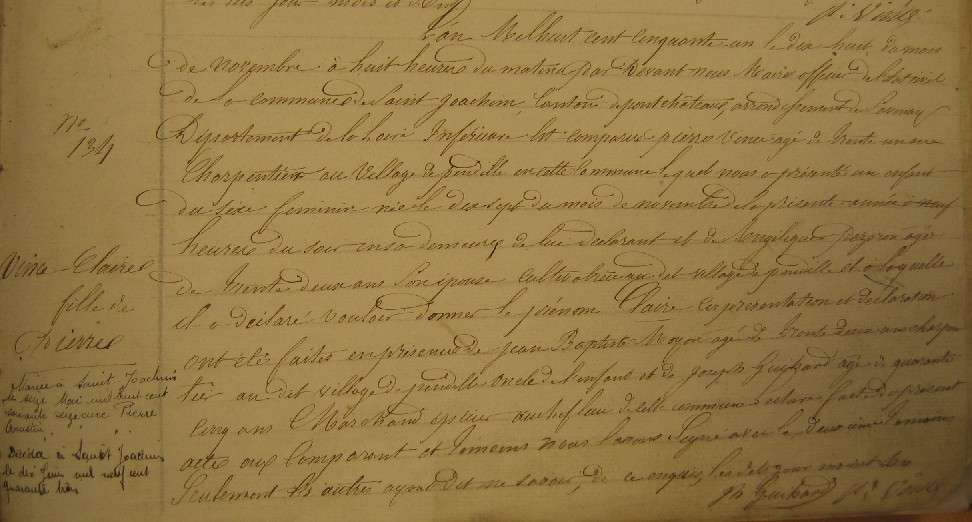 Pr Vince
L'an Mil huit cent cinquante un le dix huit du mois
de novembre à huit heures du matin par devant nous Maire officier de l'etat civil
de la commune de Saint Joachim, Canton de pontchateau, arrondissement de Savenay
Departement de la Loire Inferieure Est comparu pierre Vince agé de trente un ans
Charpentier au Village de pendille en cette Commune lequel nous a présenté un enfant
du sexe feminin née le dix sept du mois de novembre de la présente année à neuf
heures du soir en sa demeure de lui declarant et de Angelique agé
de trente deux ans son épouse cultivatrice au dit village de pendille et à laquelle
il a déclaré vouloir donner le prénom Claire les présentation et déclaration
ont été faites en présence de jean Baptiste Moyon agé de trente deux ans charpen
tier au dit village de pendille oncle de l'enfant et de joseph Guihard agé de quarante
cinq ans Marchand epicier au chef lieu de cette commune Lecture faite du présent
acte aux Comparant et temoins nous l'avons Signé avec le Deuxieme temoin
Seulement les autres ayant dit ne savoir, de ce enquis, les dits jour mois et an
Guihard Pr Vince
No
134
Vince Claire
fille de
Pierre
Mariée à Saint Joachim
le seize Mai mil huit cent
soixante seize avec Pierre
Décédée à Saint Joachim
le dix Juin mil neuf cent
quarante trois